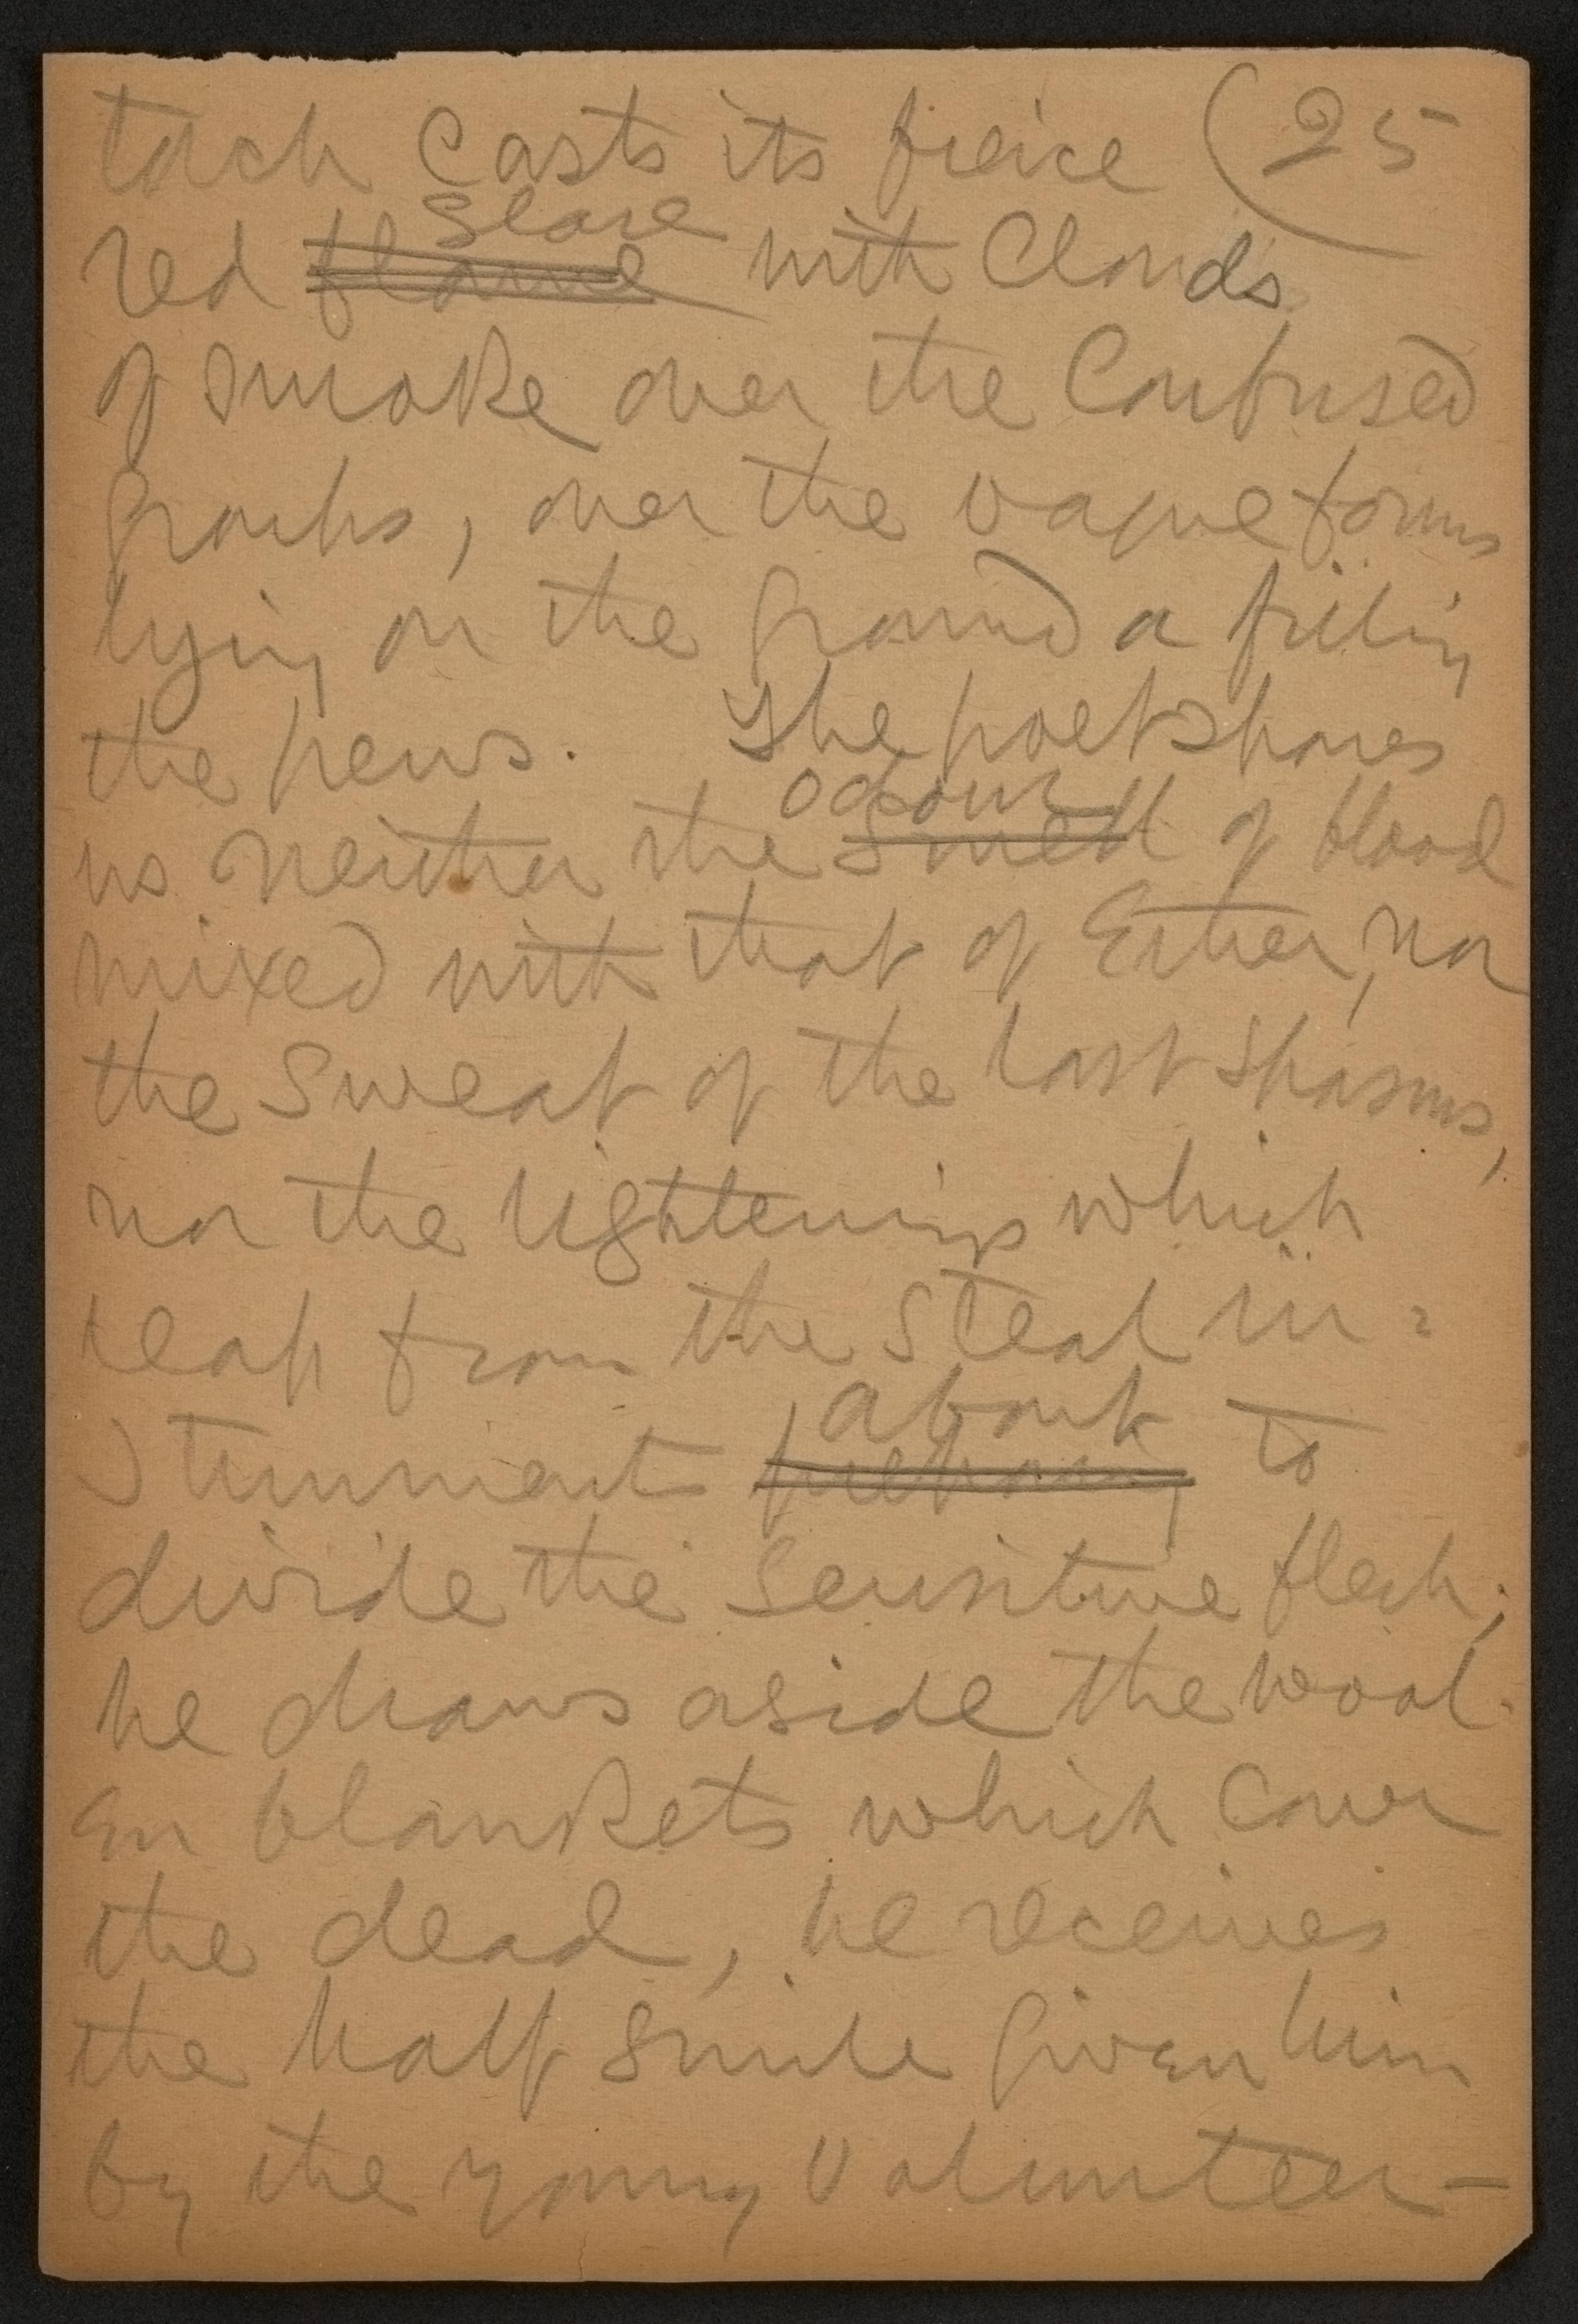 torch casts its fierce (25
glare
red flame with Clouds
of smoke over the Confused
groups, over the vague forms
lying on the ground a filling
the pews. The poet spares
odour
us neither the smell of blood
mixed with that of Ether, nor
the Sweat of the last spasms,
nor the lightenings which
leap from the Steal in=
about
struments preparing to
divide the Sensitive flesh;
he draws aside the wool-
en blankets which Cover
the dead, he receives
the half smile given him
by the young Volunteer—